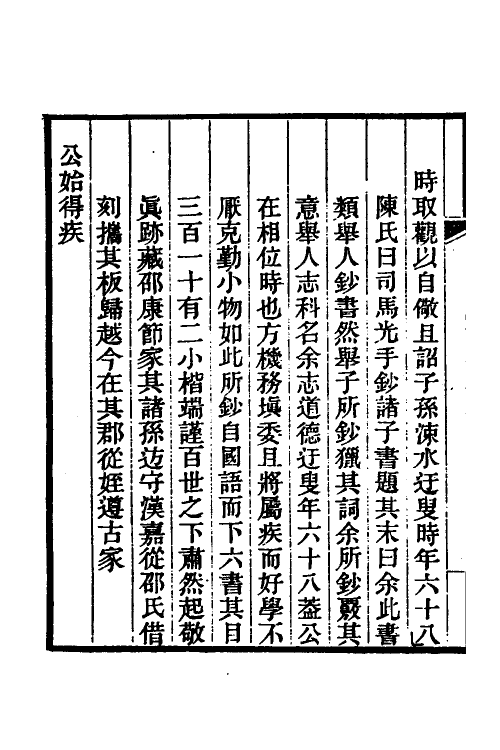 時取觀以自儆且詔子孫涑水迂叟時年六十八
陳氏曰司馬光手鈔諸子書題其末曰余此書
類舉人鈔書然舉子所鈔獵其詞余所鈔覈其
意舉人志科名余志道德迂叟年六十八葢公
在相位時也方機務塡委且將屬疾而好學不
厭克勤小物如此所鈔自國語而下六書其目
三百一十有二小楷端謹百世之下肅然起敬
眞跡藏邵康節家其諸孫守漢嘉從邵氏借
刻攜其板歸越今在其郡從姪遵古家
公始得疾